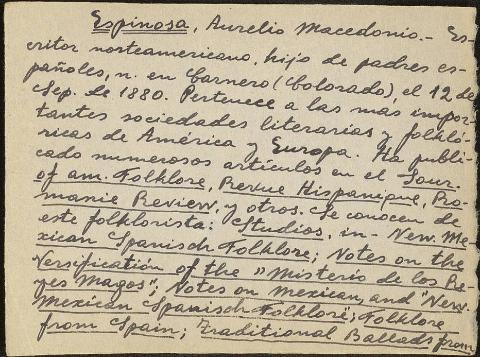 Espinosa, Aurelio Macedonio.- Es-
critor norteamericano, hijo de padres es-
pañoles, n. en Carnero (Colorado), el 12 de
Sep. de 1880. Pertenece a las más impor-
tantes sociedades literarias y folkló-
ricas de América y Europa. Ha publi-
cado numerosos artículos en el Jour.
of am. Folklore, Revue Hispanique, Ro-
manic Review, y otros. Se conocen de
este folklorista: Studios, in- New. Me-
xican Spanisch Folklore; Notes on the
Versification of the "Misterio de los Re-
yes Magos"; Notes on Mexican, and New.
Mexican Spanisch Folklore; Folklore
from Spain; Traditional Ballads from